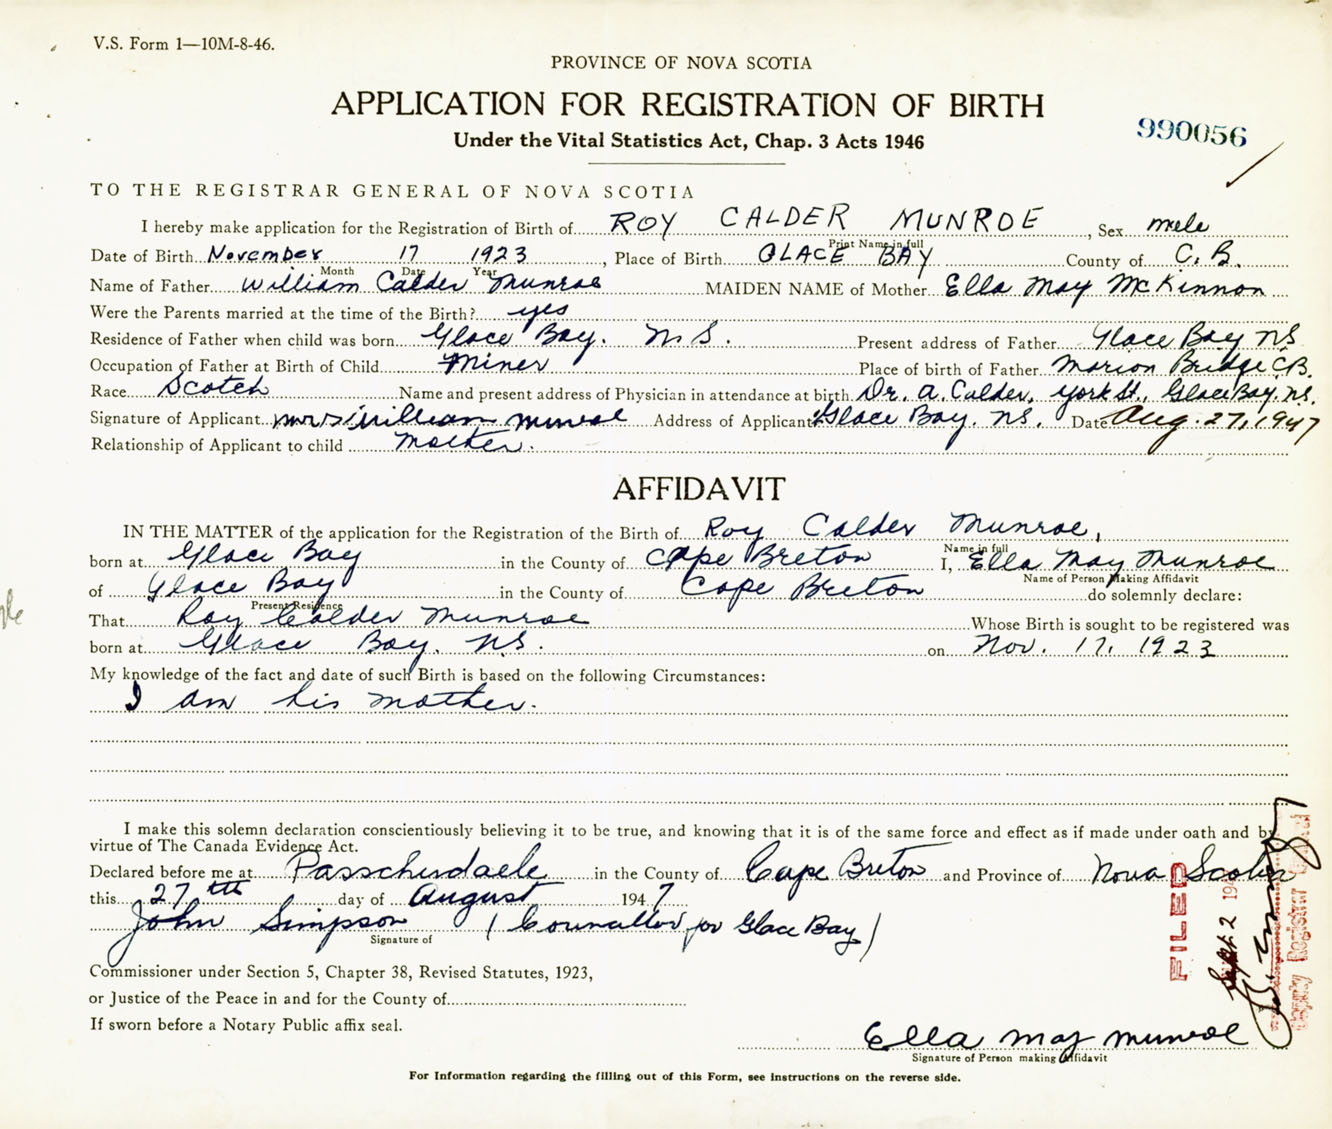 V.S. Form 1—10M-8-46.
PROVINCE OF NOVA SCOTIA
APPLICATION FOR REGISTRATION OF BIRTH
990056
Under the Vital Statistics Act, Chap. 3 Acts 1946
TO THE REGISTRAR GENERAL OF NOVA SCOTIA
I hereby make application for the Registration of Birth of ROY CALDER MUNROE, Sex male
Print Name in full
Date of Birth November 17 1923, Place of Birth GLACE BAY County of C.B.
Month Date Year
Name of Father William Calder Munroe MAIDEN NAME of Mother Ella May McKinnon
Were the Parents married at the time of the Birth? yes
Residence of Father when child was born Glace Bay. N.S. Present address of Father Glace Bay NS
Occupation of Father at Birth of Child Miner Place of birth of Father Marion Bridge C.B.
Race Scotch Name and present address of Physician in attendance at birth Dr. A. Calder, York St., Glace Bay. N.S.
Signature of Applicant Mrs William Munroe Address of Applicant Glace Bay. N.S. Date Aug. 27, 1947
Relationship of Applicant to child Mother.
AFFIDAVIT
IN THE MATTER of the application for the Registration of the Birth of Roy Calder Munroe,
Name in full
born at Glace Bay in the County of Cape Breton I, Ella May Munroe
Name of Person Making Affidavit
of Glace Bay in the County of Cape Breton do solemnly declare:
Present Residence
That Roy Calder Munroe Whose Birth is sought to be registered was
born at Glace Bay. N.S. on Nov. 17, 1923
My knowledge of the fact and date of such Birth is based on the following Circumstances:
I am his mother.
I make this solemn declaration conscientiously believing it to be true, and knowing that it is of the same force and effect as if made under oath and by
virtue of The Canada Evidence Act.
Declared before me at Passchendaele in the County of Cape Breton and Province of Nova Scotia
this 27th day of August 1947
John Simpson (Councillor for Glace Bay)
Signature of
Commissioner under Section 5, Chapter 38, Revised Statutes, 1923,
or Justice of the Peace in and for the County of
If sworn before a Notary Public affix seal.
Ella May Munroe
Signature of Person making Affidavit
For Information regarding the filling out of this Form, see instructions on the reverse side.
FILED
Sept 2 194
Deputy Registrar General